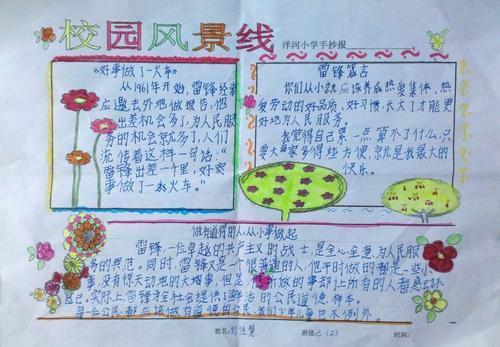 校园风景线
洋河小学手抄报
《好事做了一火车》
从1961年开始，雷锋经常
应邀去外地做报告，他
出差机会多了，为人民服
务的机会就多了，人们
流传着这样一句话："
雷锋出差一千里，好
事做了一火车。"
雷锋箴言
你们从小就应该养成热爱集体，热
爱劳动的好品质、好习惯，长大了才能更
好地为人民服务。
我觉得自己累一点算不了什么，只
要大家多得些方便，就是我最大的
快乐。
做有道德的人，从小事做起
雷锋一位卓越的共产主义的战士，是全心全意为人民服
务的典范。同时，雷锋又是一个很普通的人，他平时做的都是一些小
事，没有惊天动地的大增事，但是
所做的事却让所有的人都感动不
已。实际上，雷锋
全社会提供了鲜活的公民道德样本。
每一位公民都应该做有道德的公民，我们少年儿童也不例外。
姓名：刘佳慧
班级：六（2）
时间：